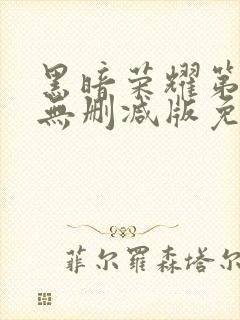 黑暗荣耀第
無删减版免
菲尔羅森塔尔